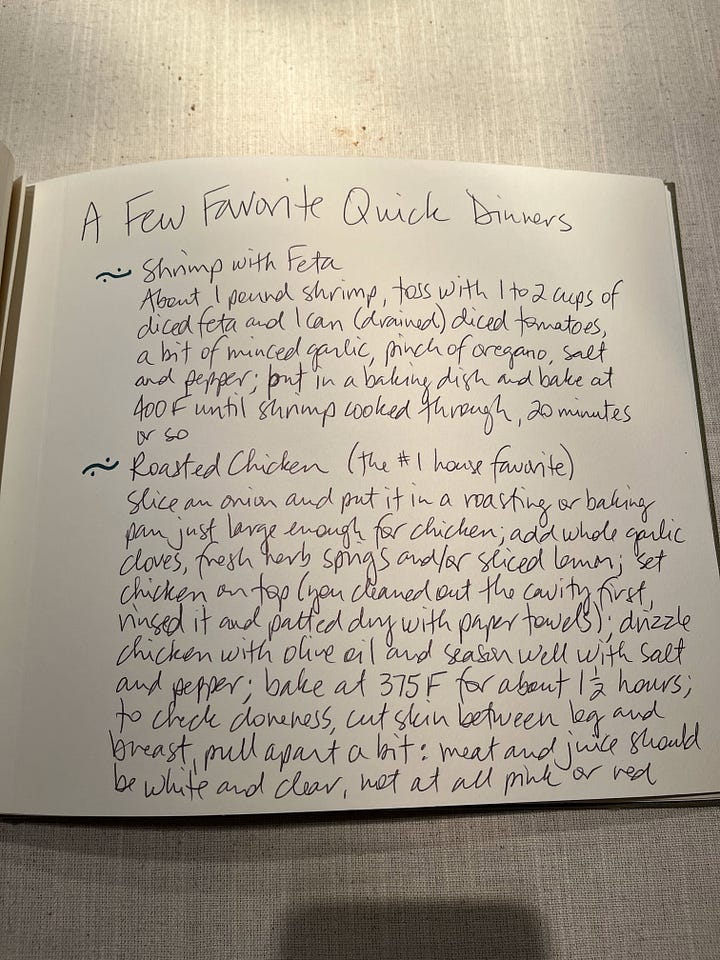 A Few Favorite Quick Dinners
~ Shrimp with Feta
About 1 pound shrimp, toss with 1 to 2 cups of
diced feta and 1 can (drained) diced tomatoes,
a bit of minced garlic, pinch of oregano, salt
and pepper; put in a baking dish and bake at
400F until shrimp cooked through, 20 minutes
or so
~ Roasted Chicken (the #1 house favorite)
Slice an onion and put it in a roasting or baking
pan just large enough for chicken; add whole garlic
cloves, fresh herb sprigs and/or sliced lemon; set
chicken on top (you cleaned out the cavity first,
rinsed it and patted dry with paper towels); drizzle
chicken with olive oil and season well with salt
and pepper; bake at 375F for about 1 1/2 hours;
to check doneness, cut skin between leg and
breast, pull apart a bit: meat and juice should
be white and clear, not at all pink or red